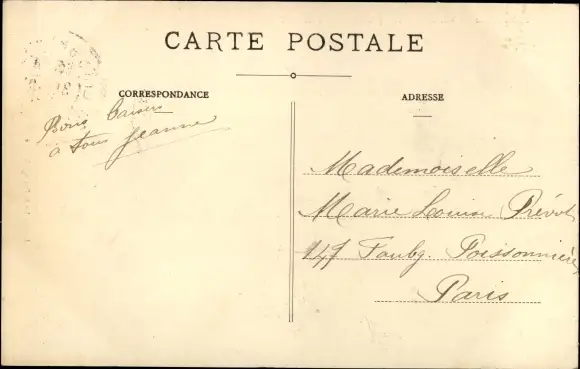 CARTE POSTALE
CORRESPONDANCE
Bons baisers
à tous Jeanne
ADRESSE
Mademoiselle
Marie Louise Prévot
147 Faubg. Poissonnière
Paris